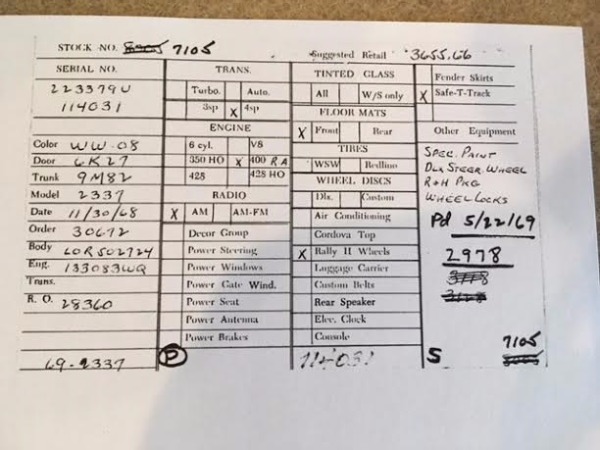 STOCK NO. 7105 Suggested Retail 3655.66
SERIAL NO.
223379U
114031
Color WW-08
Door 6K27
Trunk 9M82
Model 2337
Date 11/30/68
Order 30672
Body LOR502724
Eng. 133083WQ
Trans.
R. O. 28360
69-2337
TRANS.
Turbo. Auto.
3sp X 4sp
ENGINE
6 cyl. V8
350 HO X 400 RA
428 428 HO
RADIO
X AM AM-FM
Decor Group
Power Steering
Power Windows
Power Gate Wind.
Power Seat
Power Antenna
Power Brakes
P
TINTED GLASS
All W/S only
FLOOR MATS
X Front Rear
TIRES
WSW Redline
WHEEL DISCS
Dlx. Custom
Air Conditioning
Cordova Top
X Rally II Wheels
Luggage Carrier
Custom Belts
Rear Speaker
Elec. Clock
Console
114031
Fender Skirts
X Safe-T-Track
Other Equipment
SPEC. PAINT
DLX STEER. WHEEL
R+H PKG
WHEEL LOCKS
Pd 5/22/69
2978
7105
S